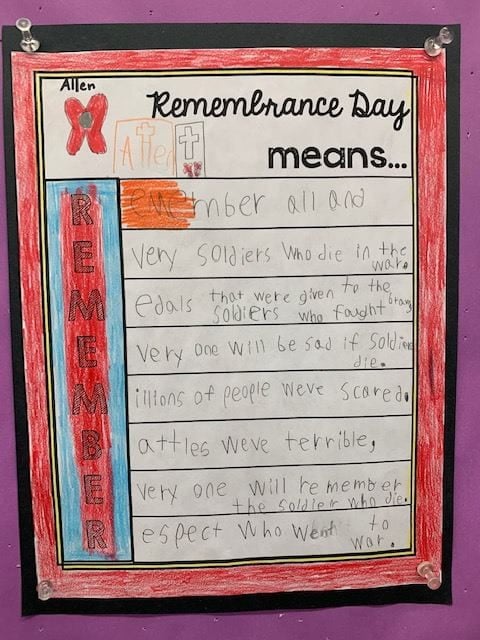 Allen
Remembrance Day
Allen
means...
Remember all and
Every soldiers who die in the
war.
Medals that were given to the
soldiers who fought bravg
Every one will be sad if soldiers
die.
Millions of people weve scared.
Battles weve terrible,
Every one will remember
the soldier who die.
Respect who went to
war.